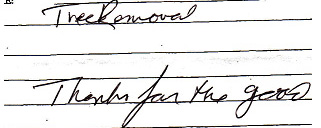 Tree Removal
Thanks for the good